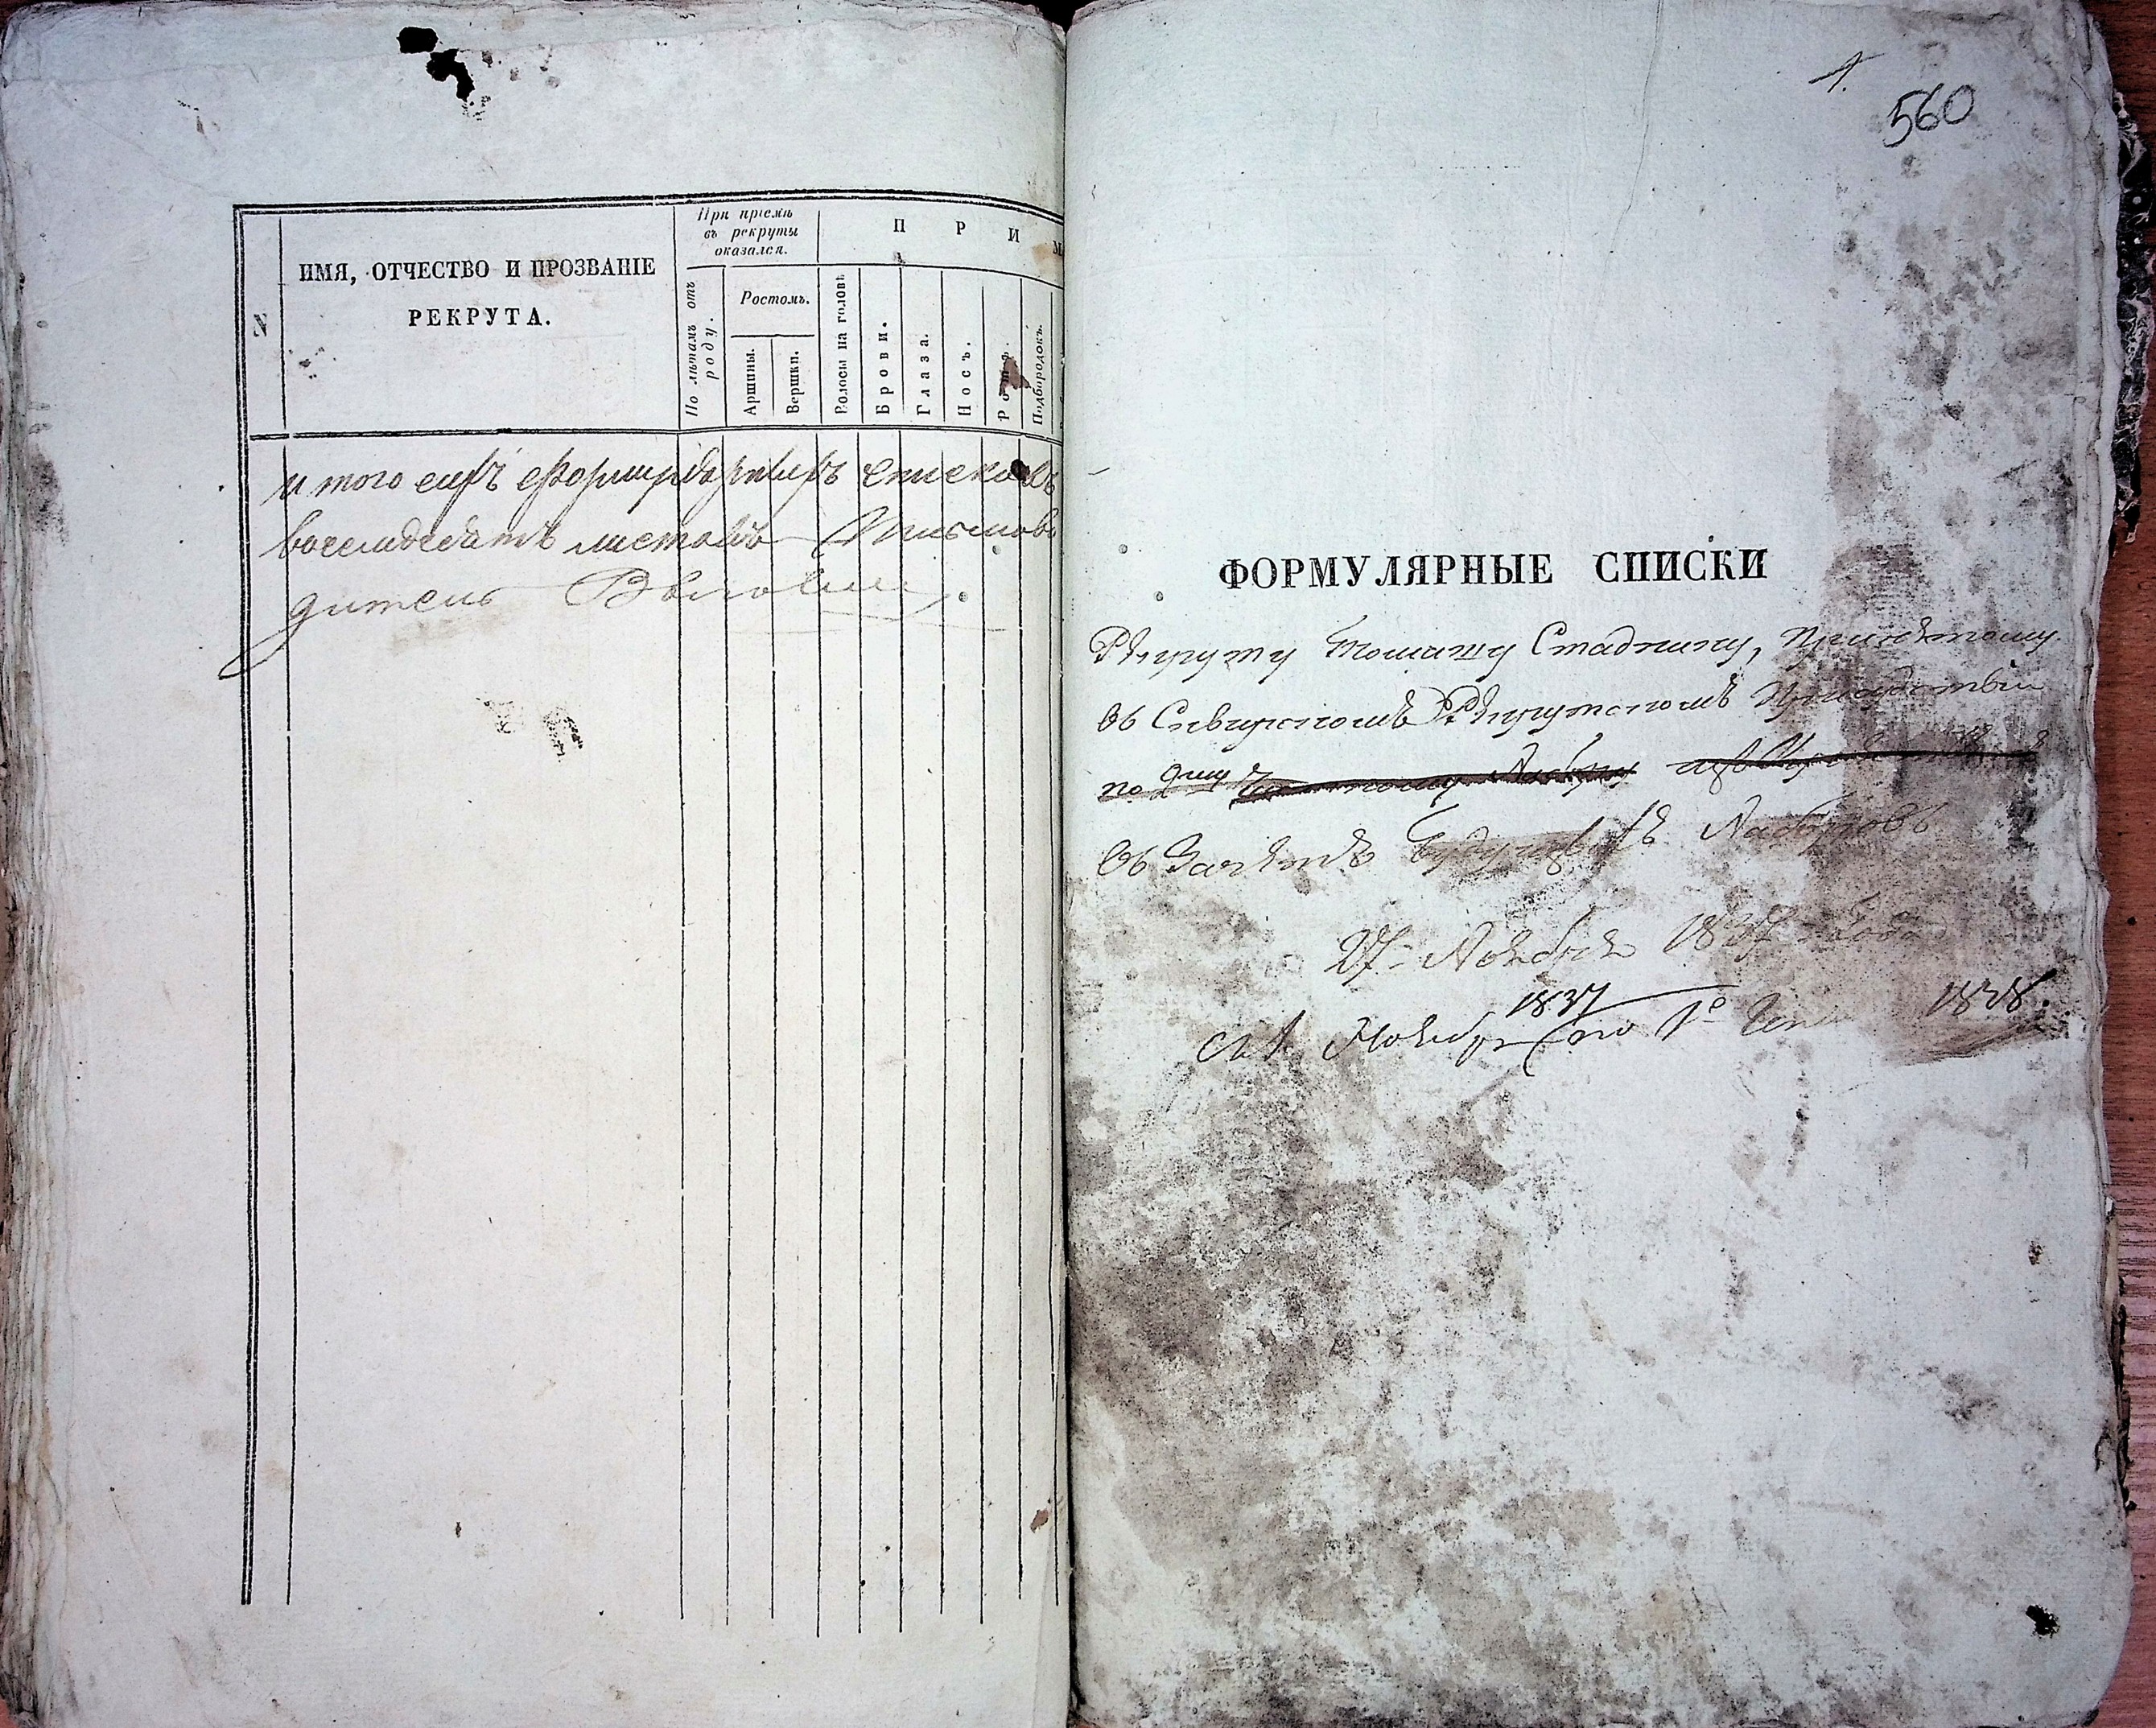 N
ИМЯ, ОТЧЕСТВО И ПРОЗВАНІЕ
РЕКРУТА.
При пріемѣ
въ рекруты
оказался.
По лѣтамъ отъ
роду.
Ростомъ.
Аршины.
Вершки.
П Р И М
Волосы на головѣ
Брови.
Глаза.
Носъ.
Ротъ.
Подбородокъ.
и того сихъ формулярныхъ списковъ
восемдесатъ листовъ Письмово
дитель
1.
560
ФОРМУЛЯРНЫЕ СПИСКИ
Рекруту Томашу Стаднику, Принятому
въ Сквирскомъ Рекрутскомъ Присудствіи
по
въ Зачетъ будущихъ Наборовъ
27 Ноября 1837 Года
съ 1 Ноября 1837 по 1е 1838.